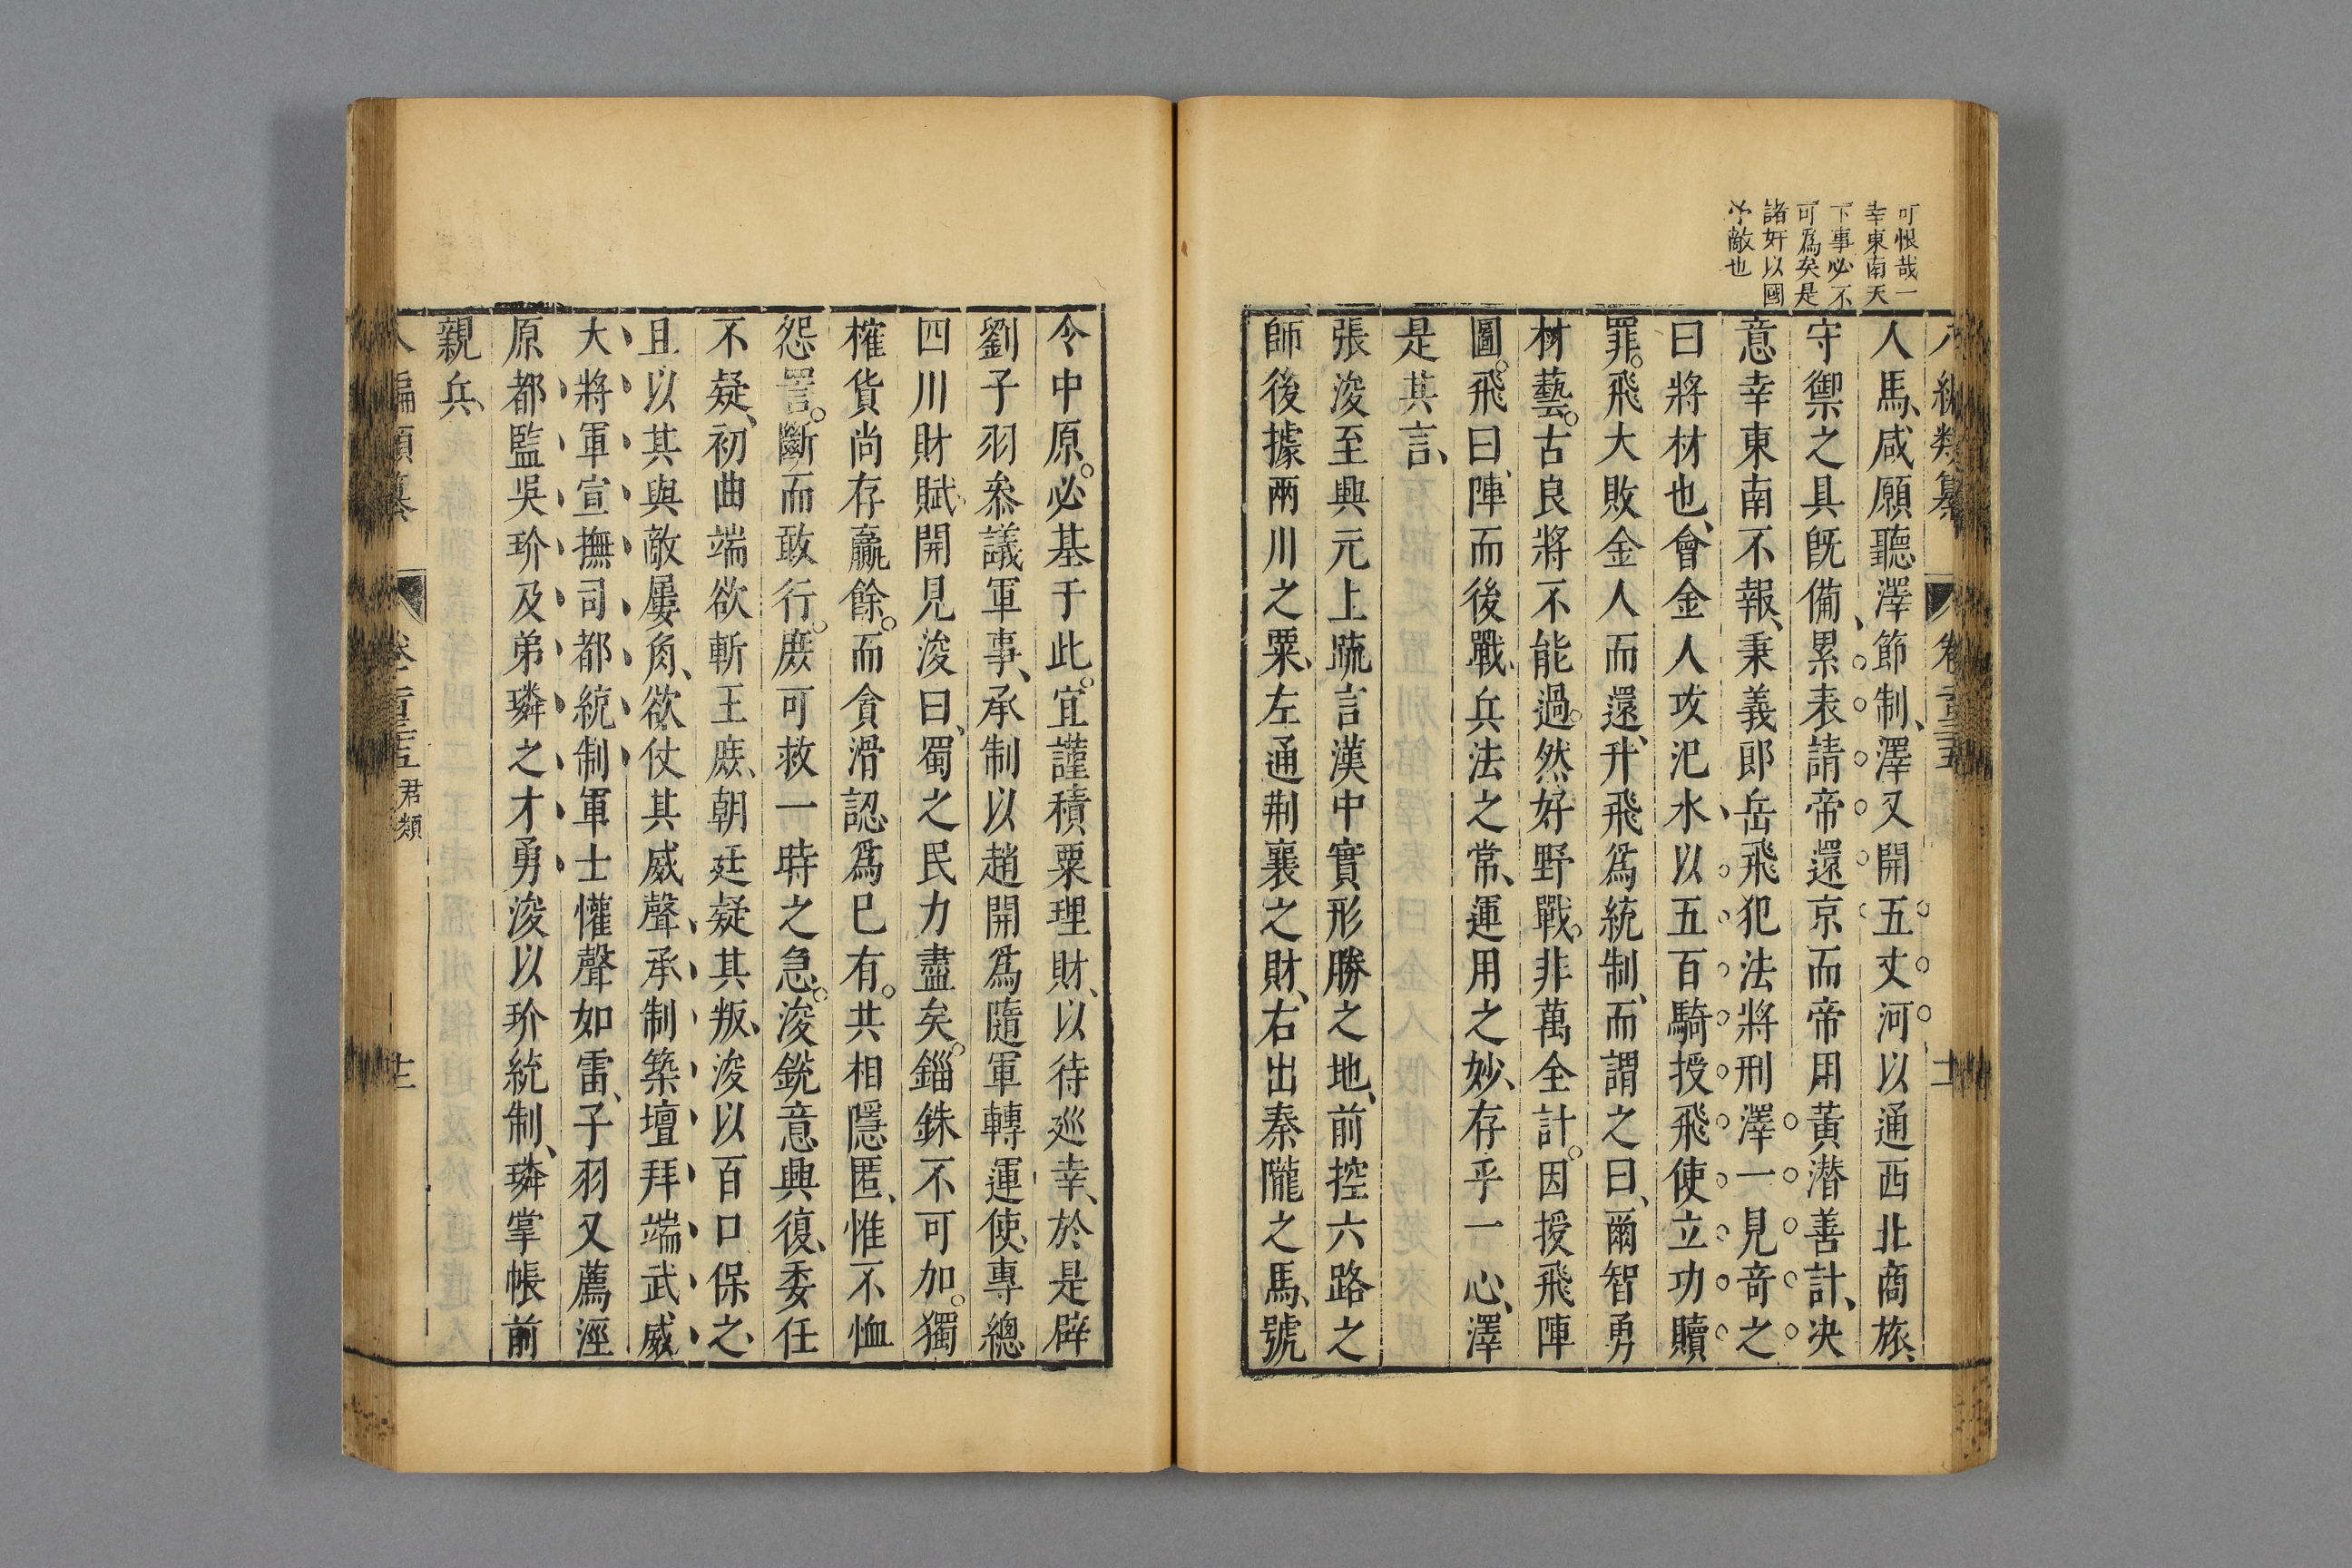 可恨哉一
幸東南天
下事必不
可爲矣是
諸奸以國
予敵也
人馬、咸願聽澤節制、澤又開五丈河以通西北商旅、
守禦之具旣備、累表請帝還京而帝用黃潛善計、決
意幸東南不報、秉義郎岳飛犯法將刑澤一見奇之
曰將材也、會金人攻汜水、以五百騎授飛使立功贖
罪。飛大敗金人而還、升飛爲統制、而謂之曰、爾智勇
材藝。古良將不能過。然好野戰。非萬全計。因授飛陣
圖。飛曰、陣而後戰、兵法之常、運用之妙、存乎一心、澤
是其言、
張浚至興元上疏言漢中實形勝之地、前控六路之
師後據兩川之粟、左通荆襄之財、右出秦隴之馬、號
令中原。必基于此。宜謹積粟理財、以待巡幸、於是辟
劉子羽叅議軍事、承制以趙開爲隨軍轉運使、專總
四川財賦、開見浚曰、蜀之民力盡矣。錙銖不可加。獨
榷貨尚存贏餘。而貪滑認爲已有。共相隱匿、惟不恤
怨詈。斷而敢行。庶可救一時之急。浚銳意興復、委任
不疑、初曲端欲斬王庶、朝廷疑其叛、浚以百口保之、
且以其與敵屢角、欲仗其威聲、承制築壇拜端武威
大將軍宣撫司都統制軍士懽聲如雷、子羽又薦涇
原都監吳玠及弟璘之才勇浚以玠統制、璘掌帳前
親兵、
君類